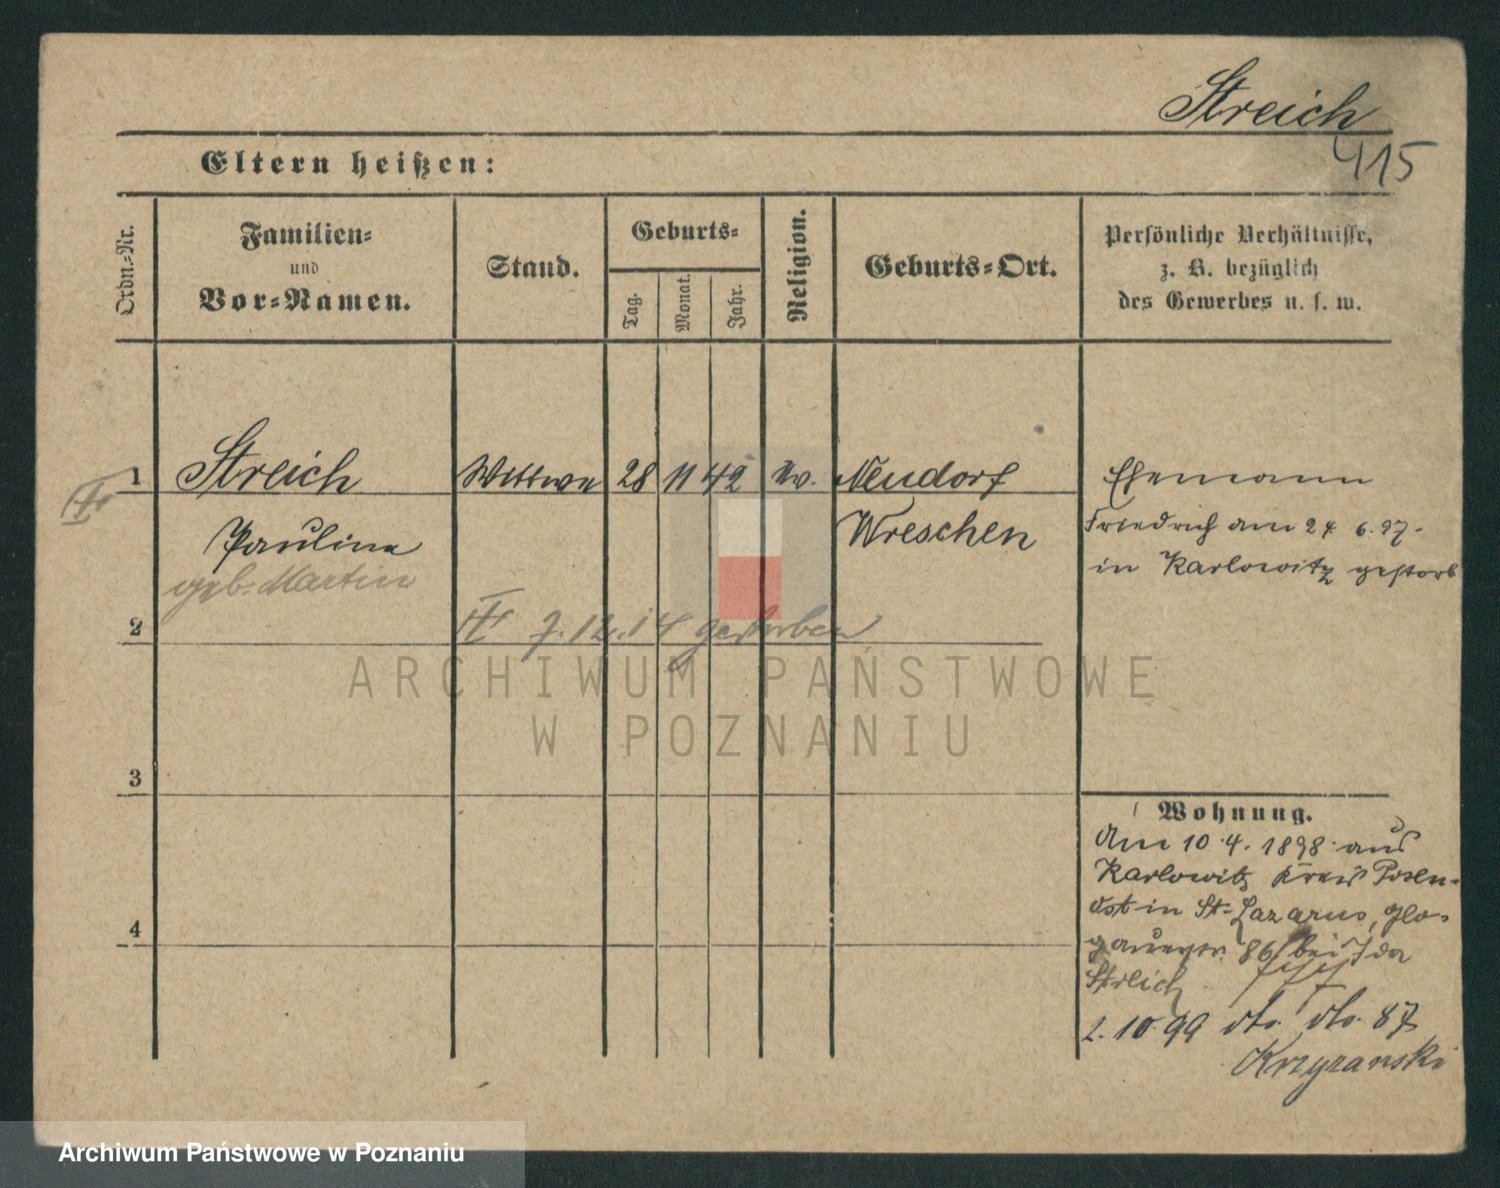 Streich
415
Eltern heißen:
Ordn.-Nr.
Familien-
und
Vor-Namen.
Stand.
Geburts-
Tag.
Monat.
Jahr.
Religion.
Geburts-Ort.
Persönliche Verhältnisse,
z. B. bezüglich
des Gewerbes u. s. w.
1 Streich Wittwe 28 11 42 ev. Neudorf Ehemann
Pauline Wreschen Friedrich am 24 6. 97.
geb. Martin in Karlowitz gestorb
2 7. 12. 14 gestorben
3
4
Wohnung.
Am 10. 4. 1898 aus
Karlowitz Kreis Posen-
Ost in St. Lazarus, Glo-
gauerstr. 86 bei Ida
Streich
2. 10 99 dto. dto. 87
Krzyzanski
ARCHIWUM PAŃSTWOWE
W POZNANIU
Archiwum Państwowe w Poznaniu